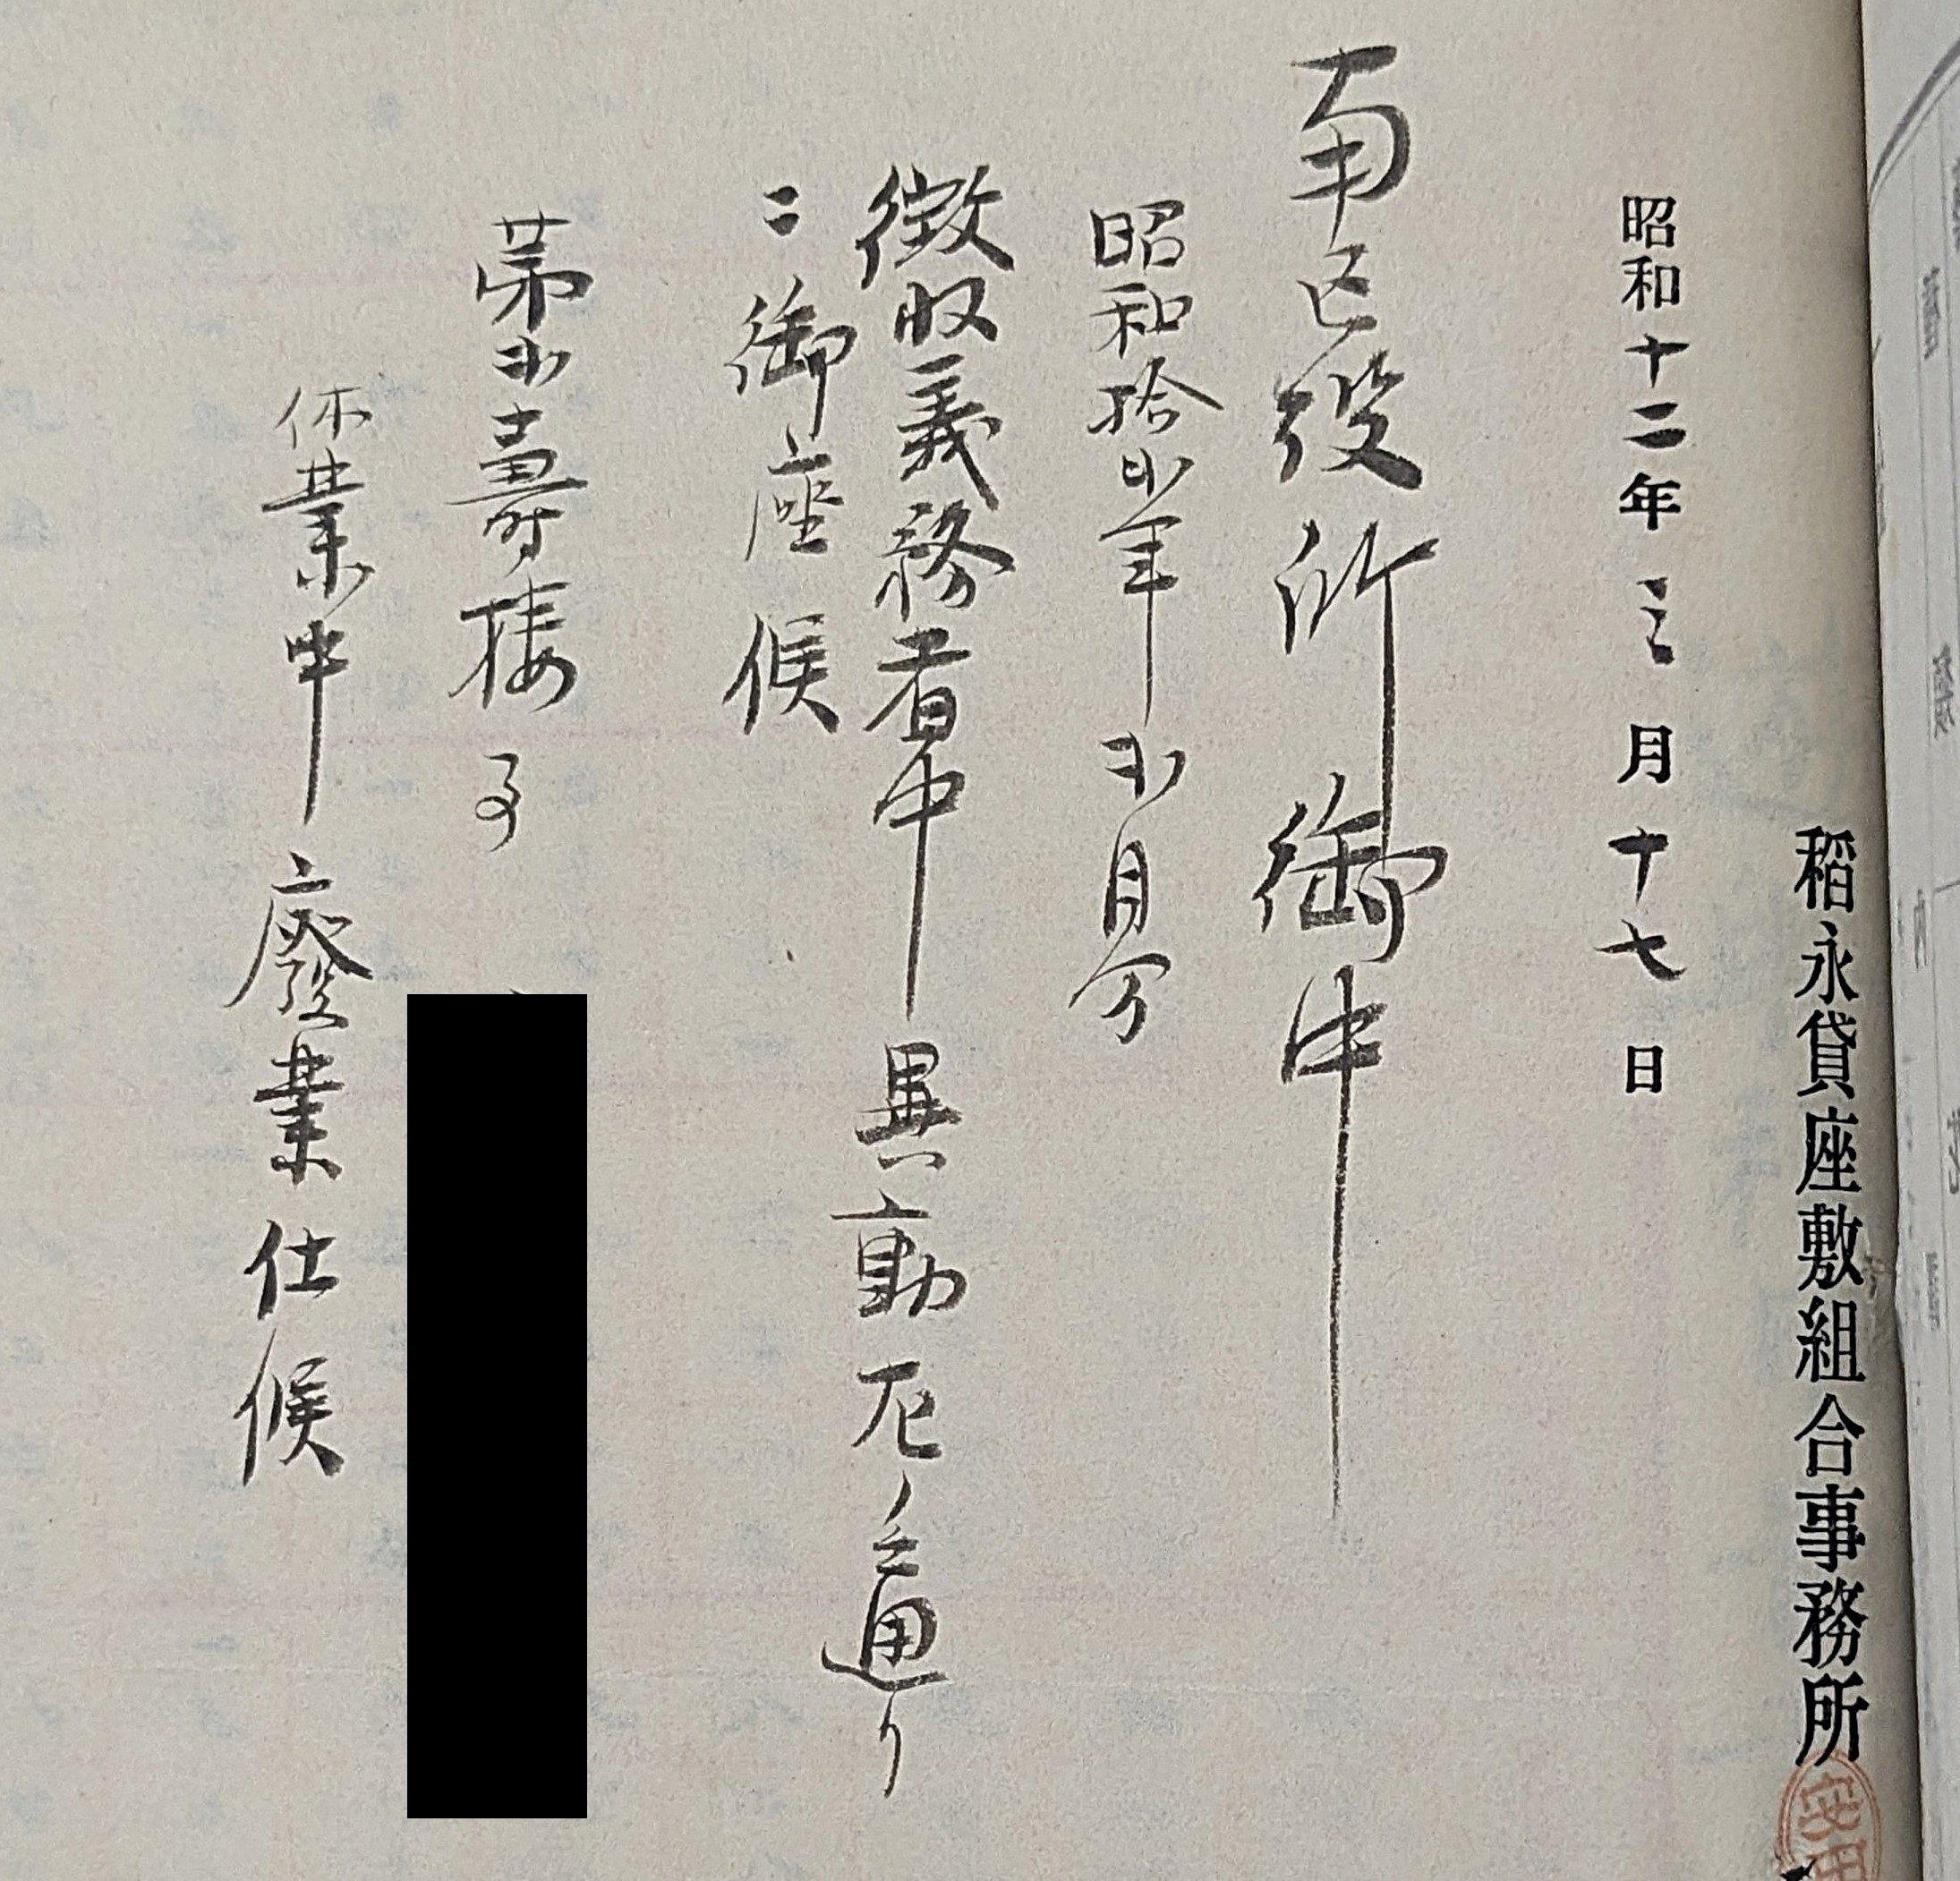 稻永貸座敷組合事務所
昭和十二年三月十七日
南区役所御中
昭和拾弐年弐月分
徴収義務者中異動左ノ通り
ニ御座候
第弐壽楼事
休業中廢業仕候